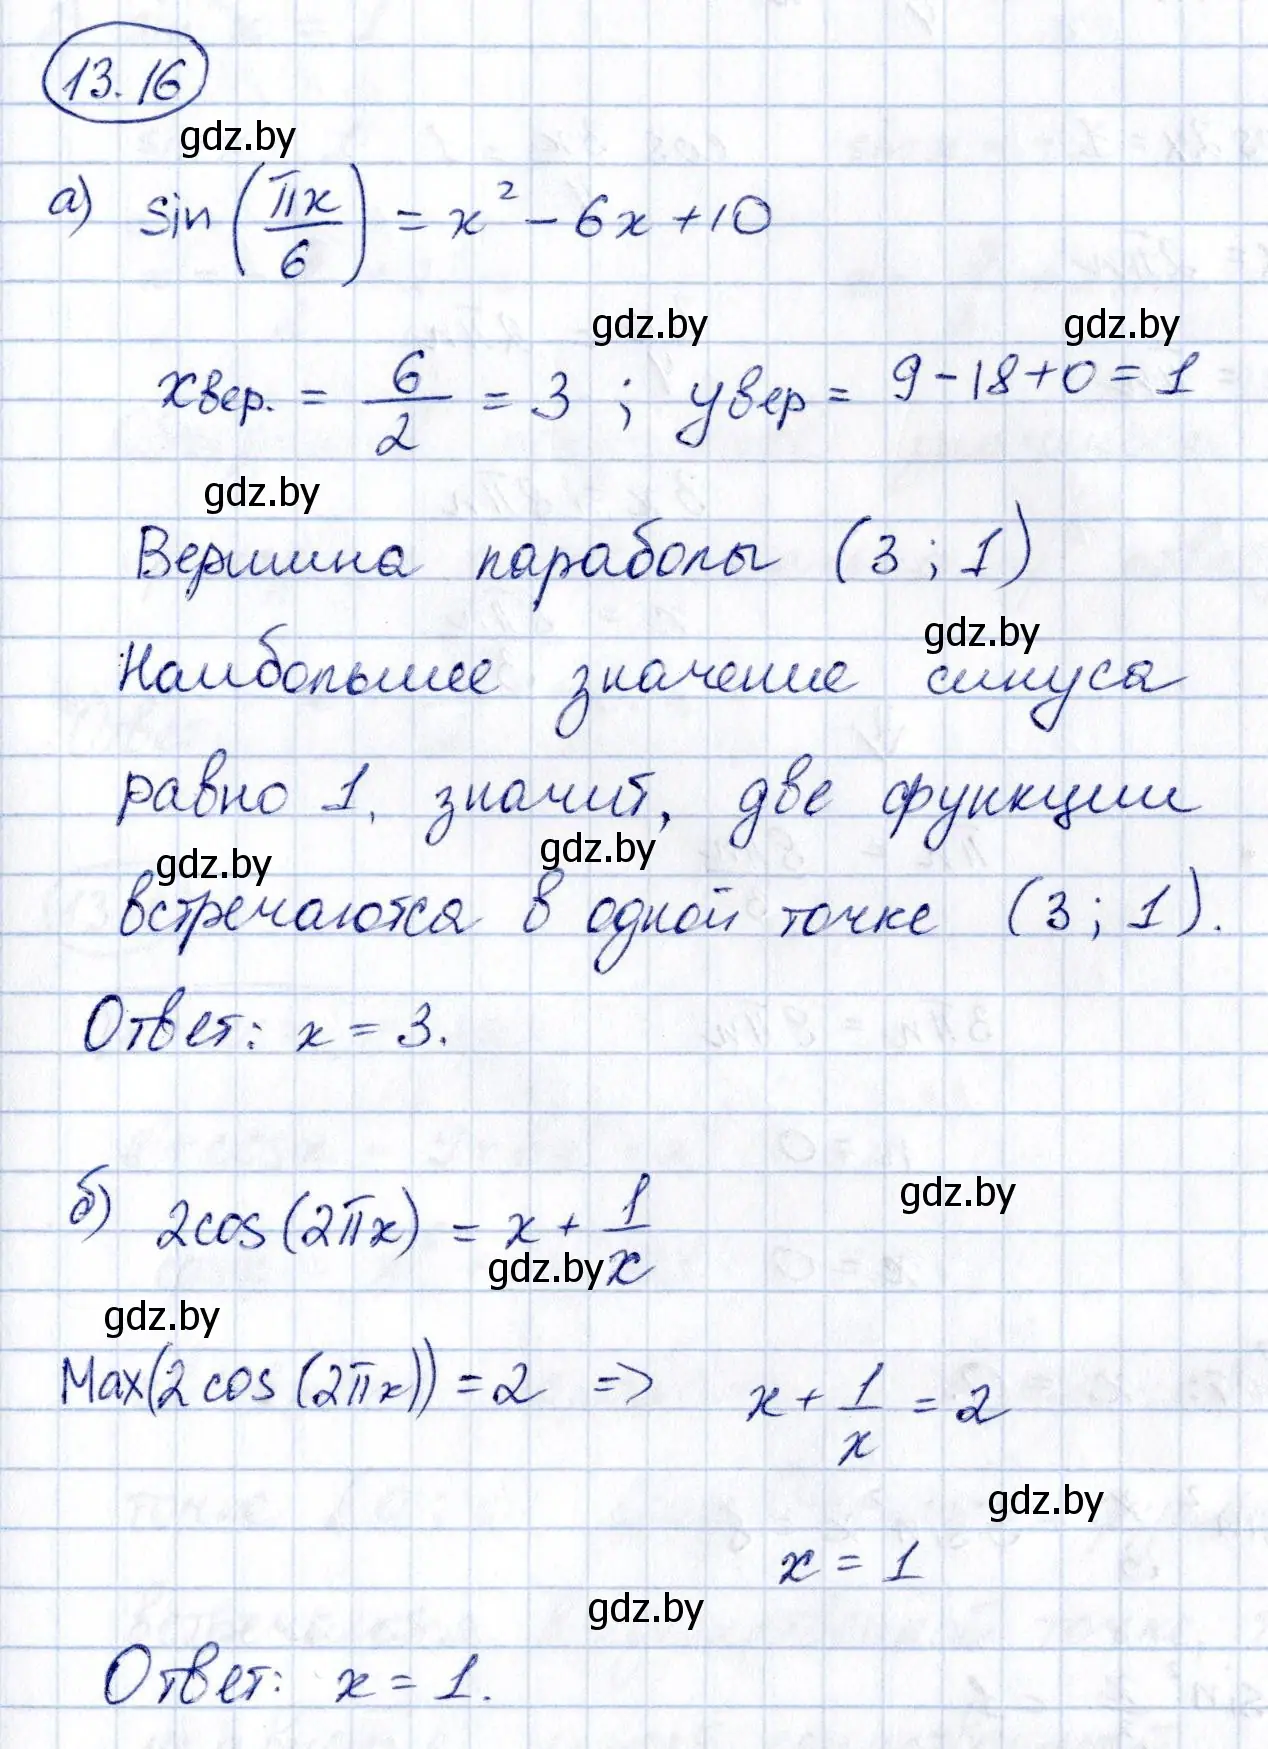 13.16
gdz.by
а) sin(πx/6) = x² - 6x + 10
gdz.by gdz.by
xвер. = 6/2 = 3 ; yвер = 9 - 18 + 0 = 1
gdz.by
Вершина параболы (3 ; 1)
gdz.by
Наибольшее значение синуса
равно 1, значит, две функции
gdz.by gdz.by
встречаются в одной точке (3 ; 1).
Ответ: x = 3.
gdz.by
б) 2cos(2πx) = x + 1/x
gdz.by
gdz.by
Max(2cos(2πx)) = 2 => x + 1/x = 2
gdz.by
x = 1
gdz.by
Ответ: x = 1.